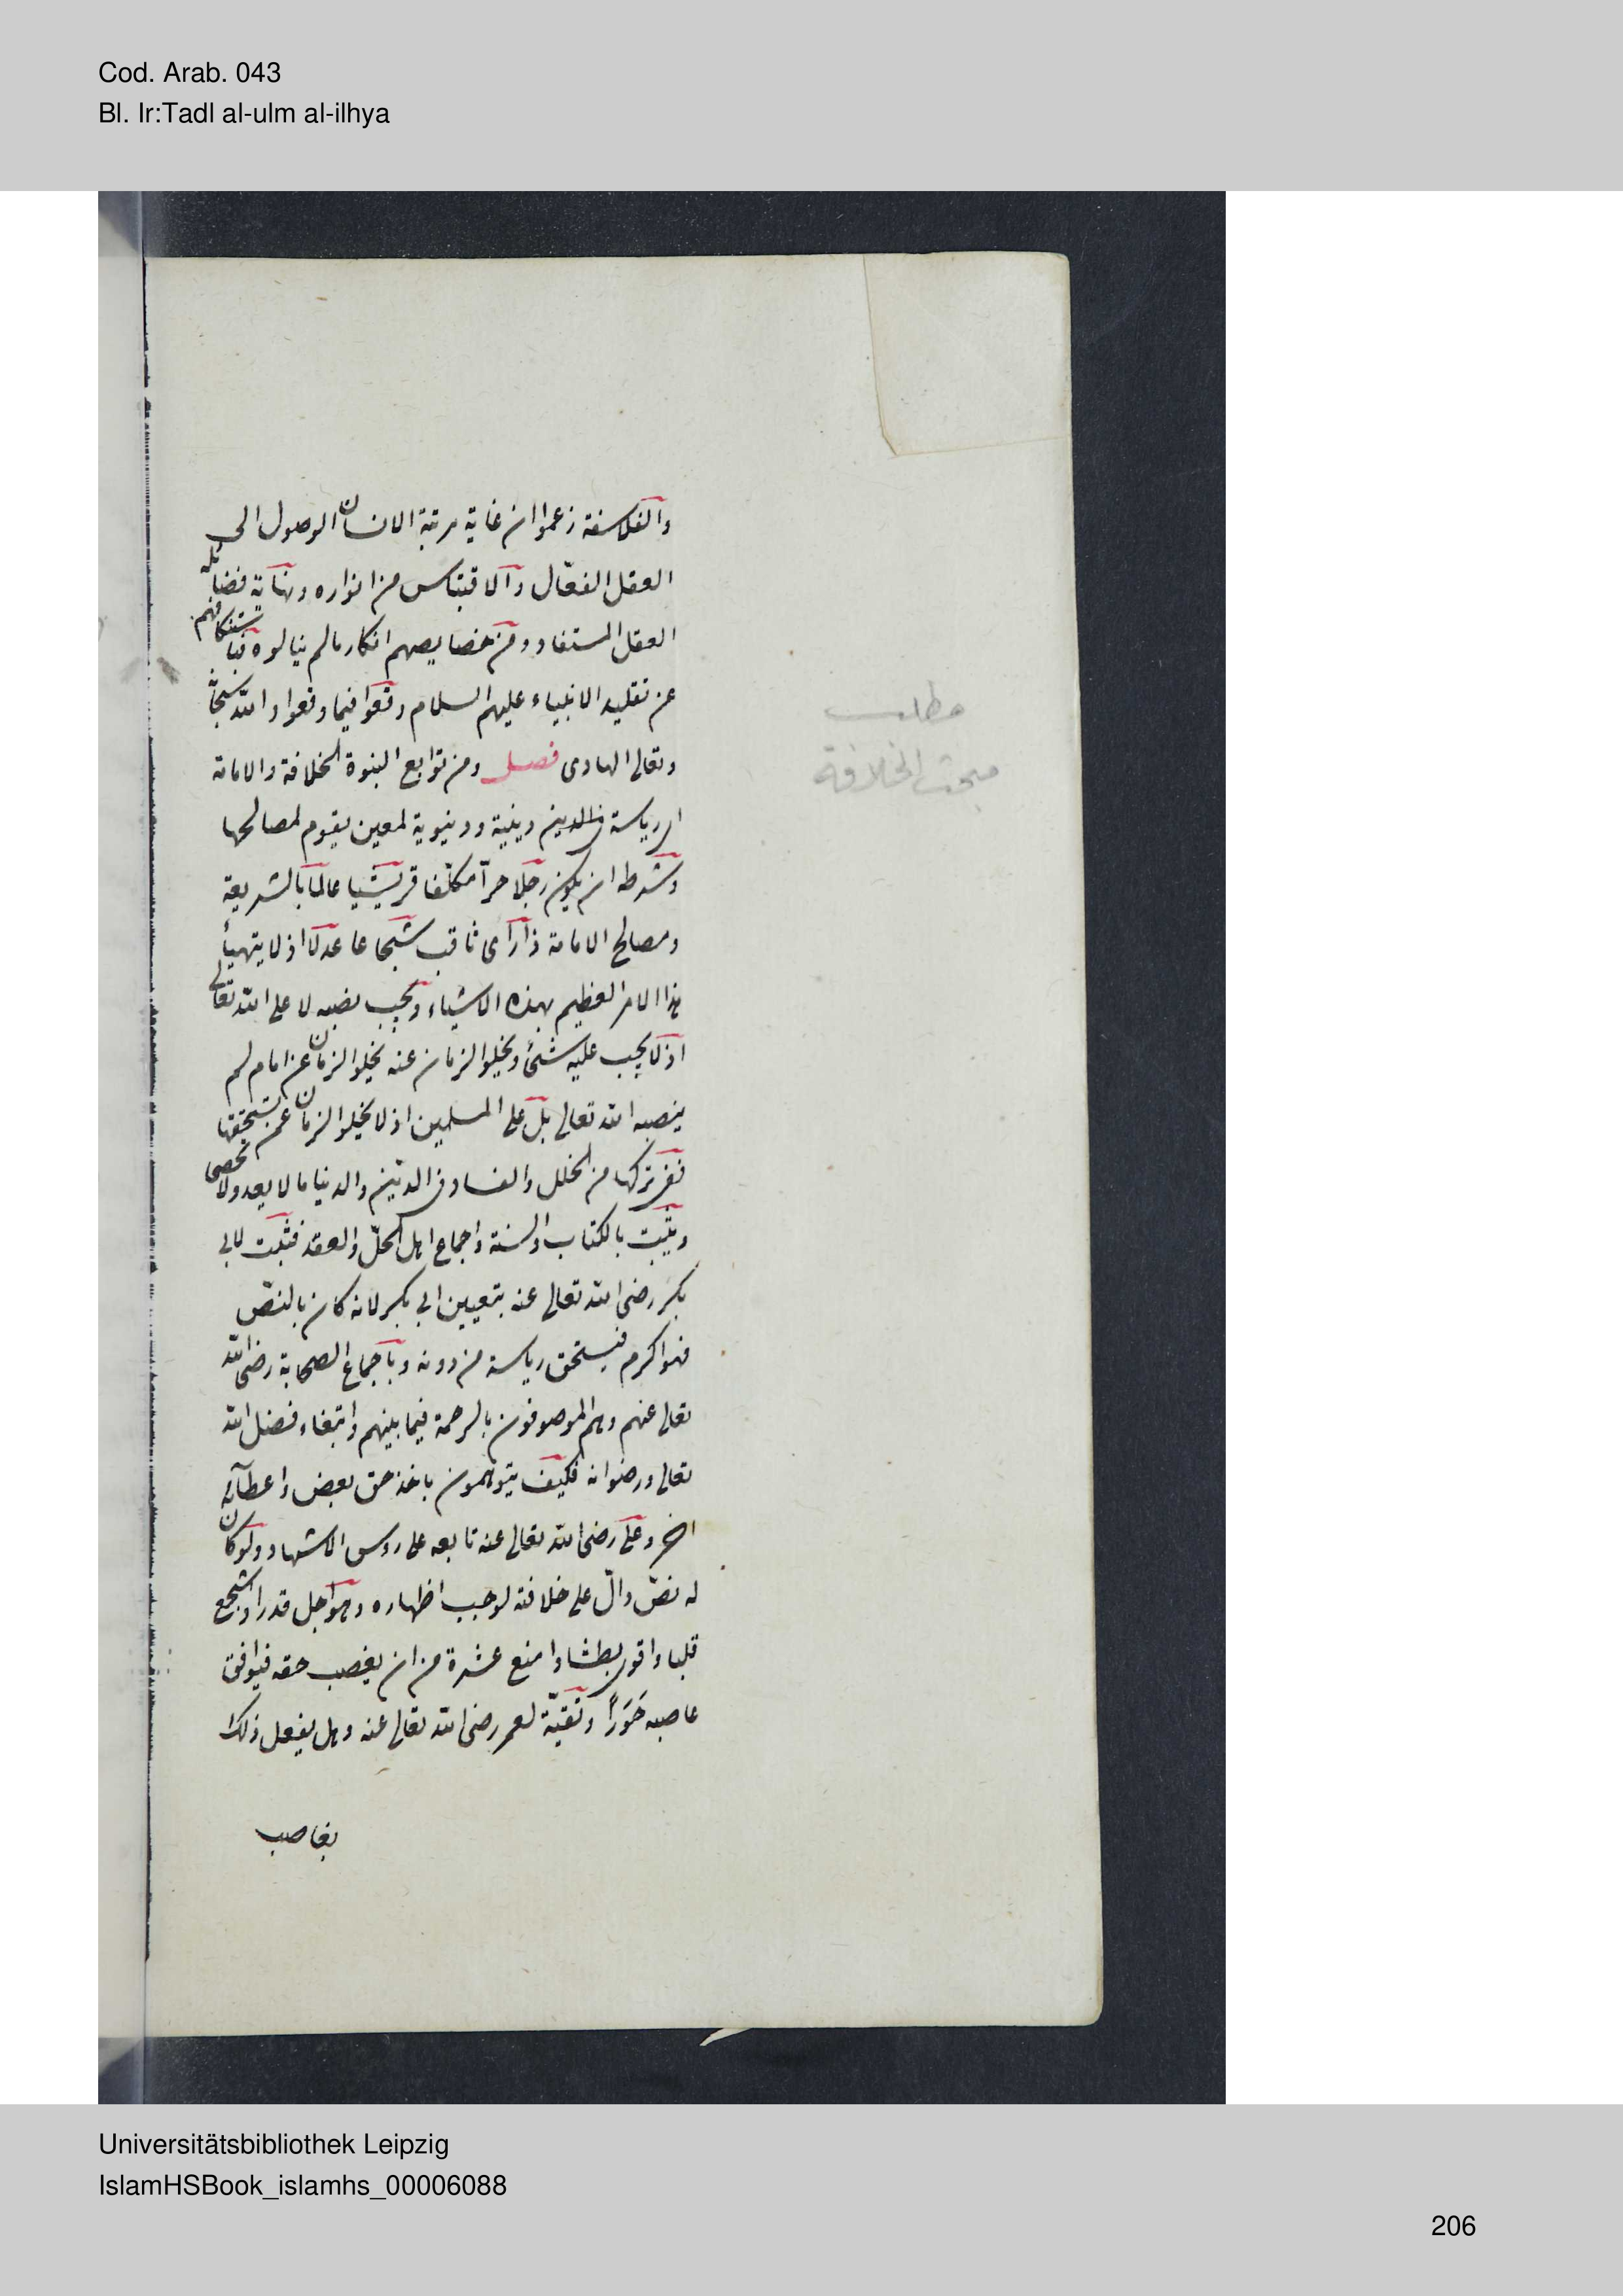 Cod. Arab. 043
Bl. Ir:Tadl al-ulm al-ilhya
والفلاسفة زعموا ان غاية مرتبة الانسان الوصول الى
العقل الفعّال والاقتباس من انواره ونهاية فضايله
العقل المستفاد ومن خصايصهم انكار مالم ينالوه
عن تقليد الانبياء عليهم السلام وقعوا فيما وقعوا والله سبحانه
وتعالى الهادى فصل ومن توابع النبوة الخلافة والامامة
اى رياسة فى الدين دينية ودنيوية لمعين يقوم لمصالحها
وشرطه ان يكون رجلا حرّا مكلّفا قريشيا عالما بالشريعة
ومصالح الامامة ذا رأى ثاقب شجاعا عدلا اذ لا يتهيأ
هذا الامر العظيم بهذه الاشياء ويجب نصبه لا على الله تعالى
اذ لا يجب عليه شئ ويخلوا الزمان عنه يخلوا الزمان عن امام لم
ينصبه الله تعالى بل على المسلمين اذ لا يخلوا الزمان عمن يستحقها
ففى تركها من الخلل والفساد فى الدين والدنيا ما لا يعد ولا يحصى
ويثبت بالكتاب والسنة واجماع اهل الحلّ والعقد فثبت لابى
بكر رضى الله تعالى عنه بتعيين ابى بكر لانه كان بالنصّ
فهو اكرم فيستحق رياسة من دونه وباجماع الصحابة رضى الله
تعالى عنهم وهم الموصوفون بالرحمة فيما بينهم وابتغاء فضل الله
تعالى ورضوانه فكيف يتوهمون باخذ حق بعض واعطآئه
اخر وعلى رضى الله تعالى عنه تابعه على روس الاشهاد ولو كان
له نصّ دالّ على خلافته لوجب اظهاره وهو اجل قدرا واشجع
قلبا واقوى بطشا وامنع عشرة من ان يغصب حقه فيوافق
غاصبه خورًا وتقيّة لعمر رضى الله تعالى عنه وهل يفعل ذلك
بغاصب
مطلب
مبحث الخلافة
Universitätsbibliothek Leipzig
IslamHSBook_islamhs_00006088
206